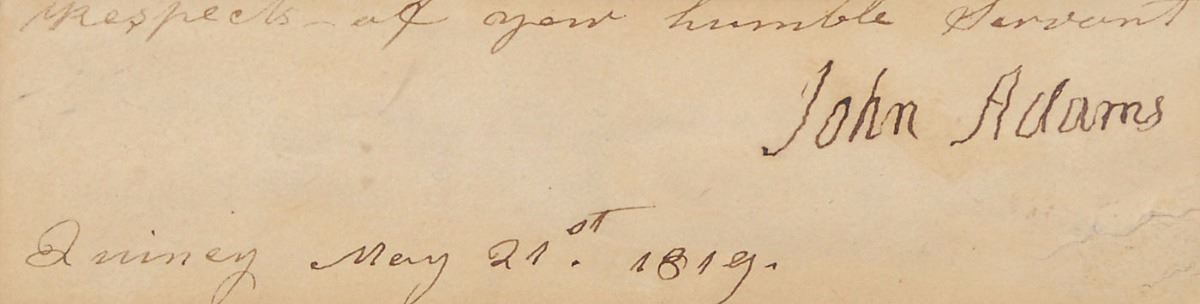 respects of your humble Servant
John Adams
Quincy May 21st. 1819.